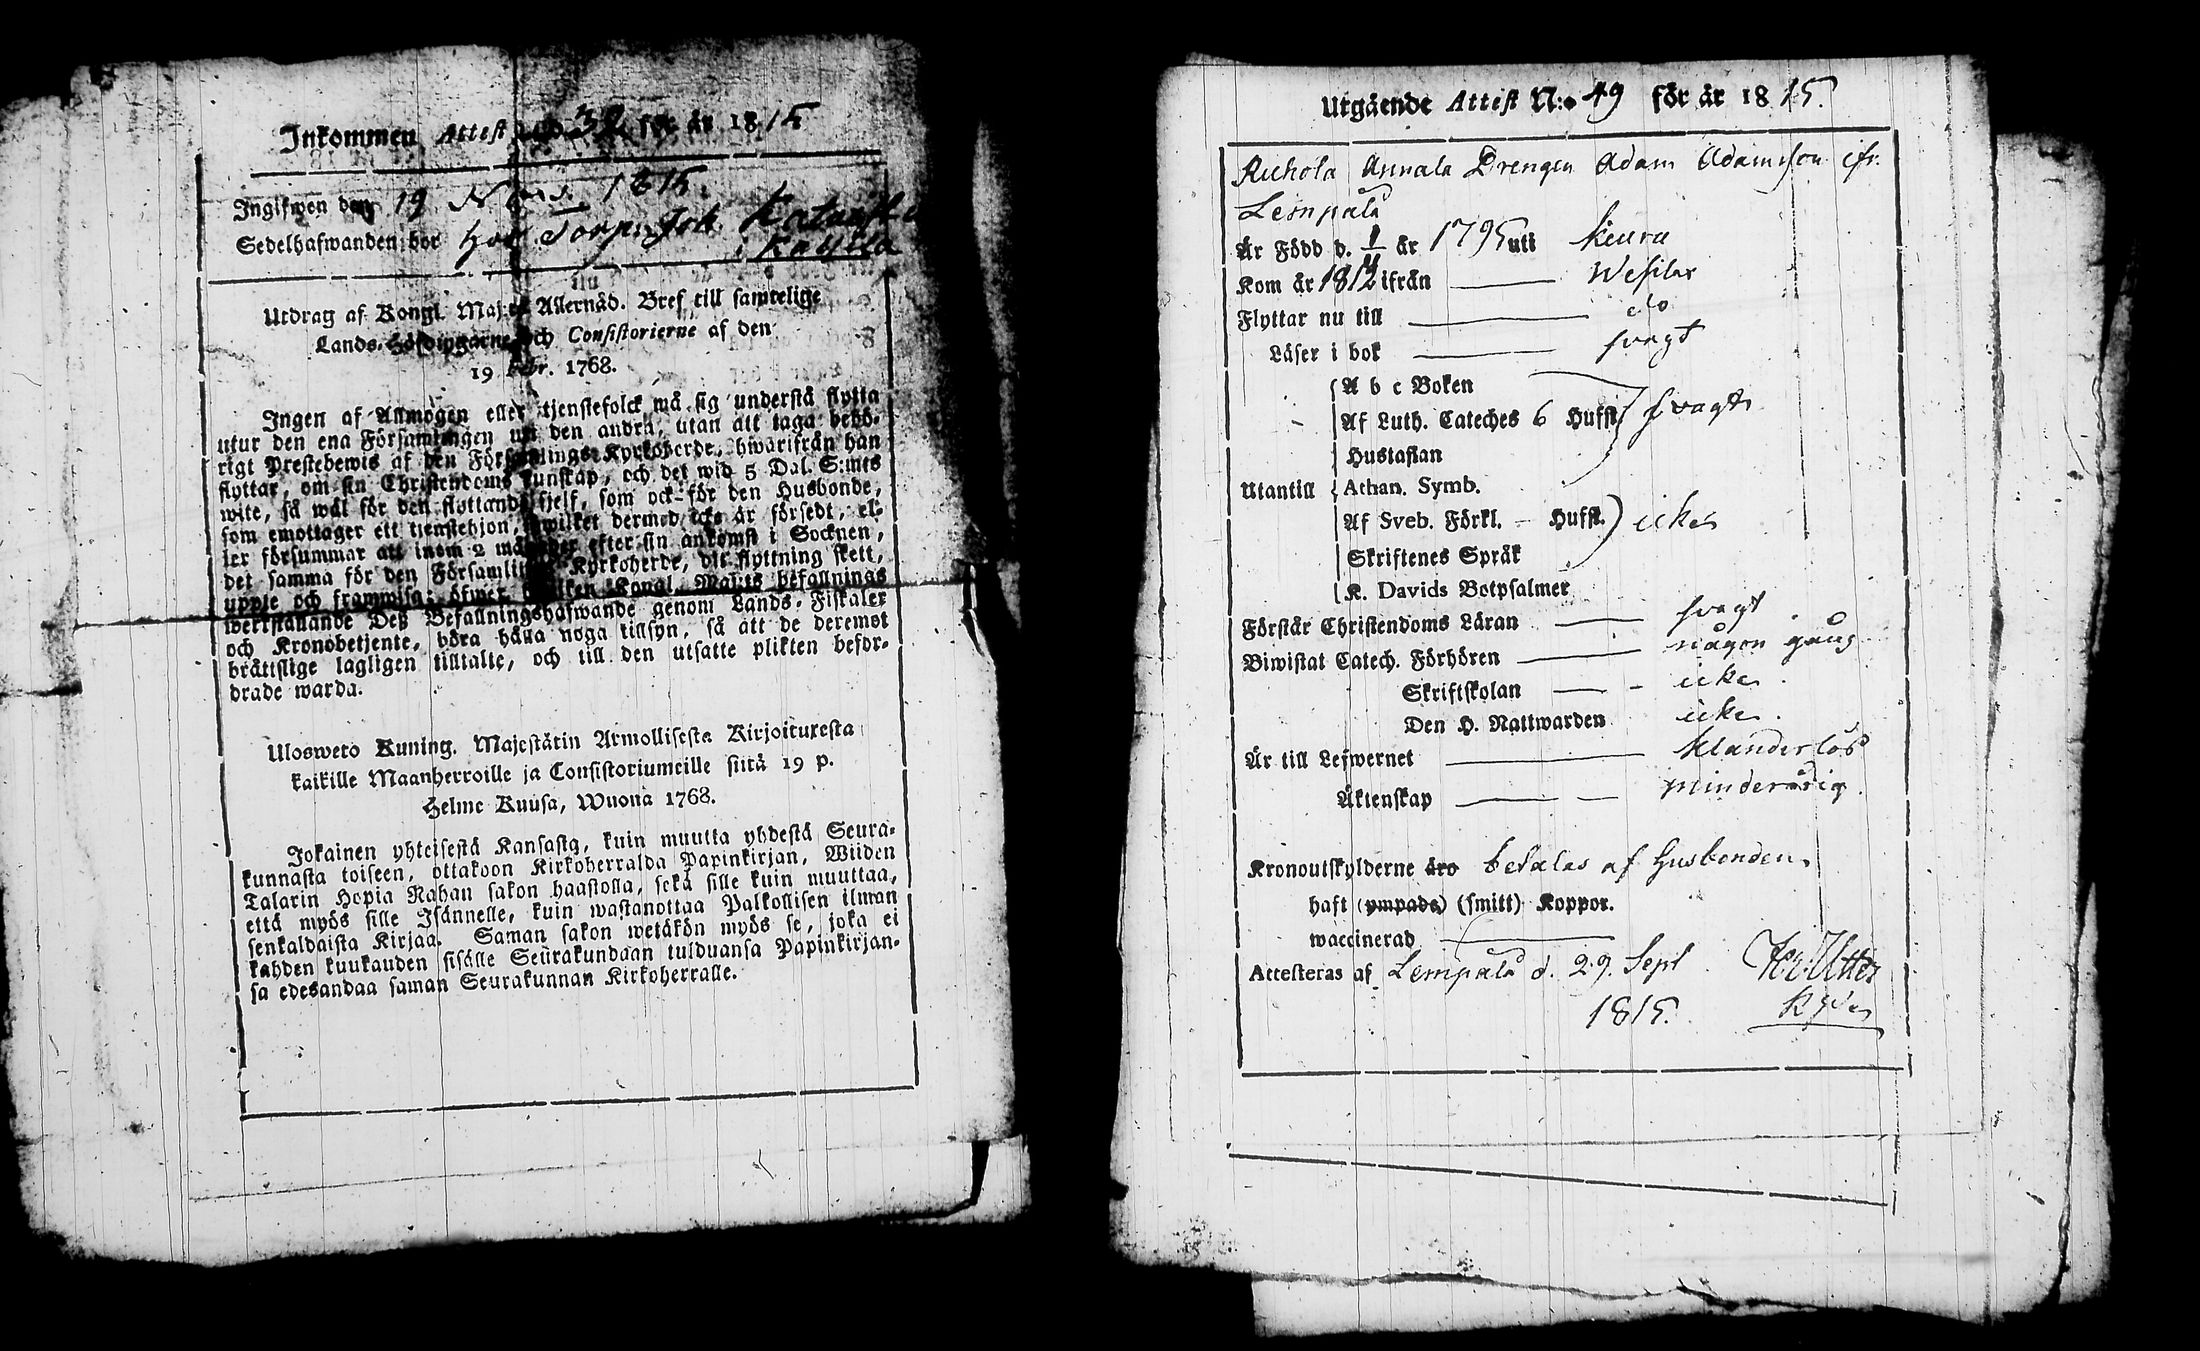 Inkommen Attest N:o 32 för år 1815
Ingifwen den 19 Nov. 1815.
Sedelhafwanden bor hos Torp. Joh.
i Kaysila
Utdrag af Kongl. Maj:ts Allernåd. Bref till samtelige
Lands-Höfdingarne och Consistorierne af den
19 Febr. 1768.
Ingen af Allmogen eller tjenstefolck må sig understå flytta
utur den ena Församlingen uti den andra, utan att taga behö-
rigt Prestebewis af den Församlings Kyrkoherde, hwarifrån han
flyttar, om sin Christendoms kunskap, och det wid 5 Dal. S:mts
wite, så wäl för den flyttande sjelf, som ock för den Husbonde,
som emottager ett tjenstehjon, hwilket dermed icke är försedt, el-
ler försummar att inom 2 månader efter sin ankomst i Socknen,
det samma för den Församlings Kyrkoherde, dit flyttning skett,
uppte och framwisa; öfwer hwilken Kongl. Maj:ts befallnings
werkställande Deß Befallningshafwande genom Lands-Fiskaler
och Kronobetjente, böra hålla noga tillsyn, så att de deremot
brättslige lagligen tilltalte, och till den utsatte plikten befor-
drade warda.
Ulosweto Kuning. Majestätin Armollisesta Kirjoituxesta
kaikille Maanherroille ja Consistoriumeille siitä 19 p.
Helme Kuusa, Wuona 1768.
Jokainen yhteisestä Kansasta, kuin muutta yhdestä Seura-
kunnasta toiseen, ottakoon Kirkoherralda Papinkirjan, Wiiden
Talarin Hopia Rahan sakon haastolla, sekä sille kuin muuttaa,
että myös sille Isännelle, kuin wastanottaa Palkollisen ilman
senkaldaista Kirjaa. Saman sakon wetäkön myös se, joka ei
kahden kuukauden sisälle Seurakundaan tulduansa Papinkirjan-
sa edesandaa saman Seurakunnan Kirkoherralle.
Utgående Attest N:o 49 för år 1815.
Kuhola Annala Drengen Adam Adamsson ifr.
Lempälä
Är Född d. 1/4 år 1795 uti Keuru
Kom år 1812 ifrån Wesilax
Flyttar nu till do
Läser i bok svagt
A b c Boken
Af Luth. Cateches 6 Hufst. svagt
Hustaflan
Utantill Athan. Symb.
Af Sveb. Förkl. – Hufst. icke
Skriftenes Språk
K. Davids Botpsalmer
Förstår Christendoms Läran svagt
Biwistat Catech. Förhören någon gång
Skriftskolan icke
Den H. Nattwarden icke
Är till Lefwernet klanderlös
Äktenskap minderårig
Kronoutskylderne äro betalas af Husbonden
haft (ympade) (smitt) Koppor.
waccinerad
Attesteras af Lempälä d. 29 Sept
1815.